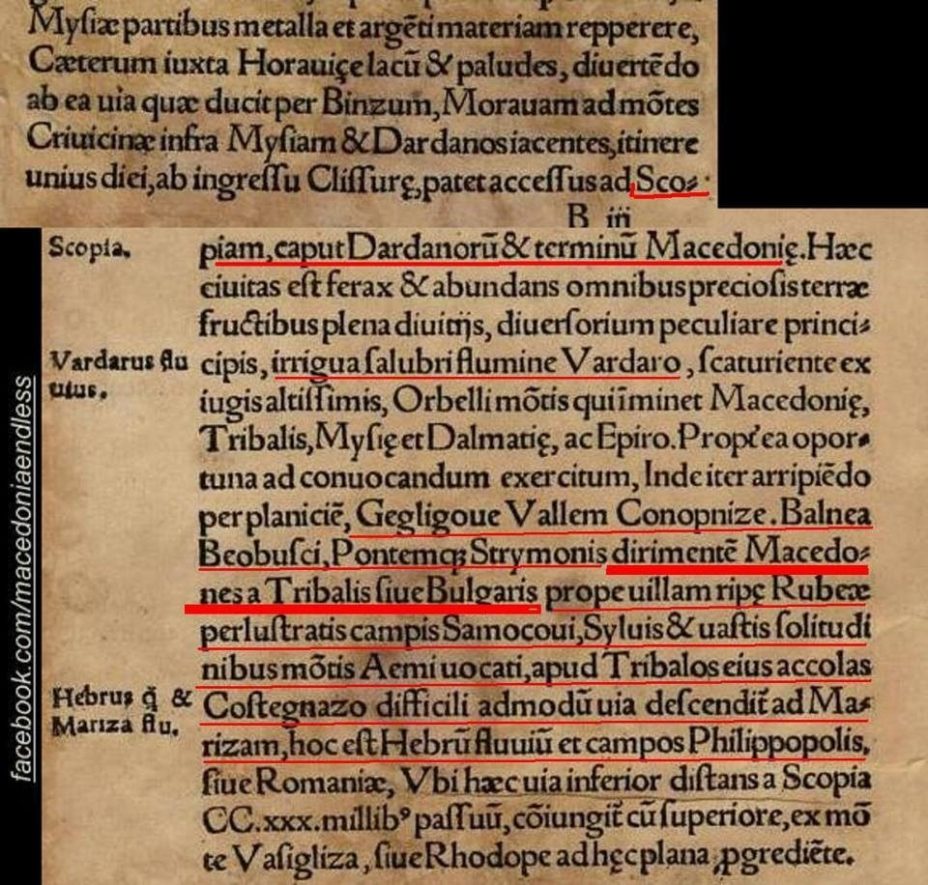 Mysiæ partibus metalla et argẽti materiam repperere,
Cæterum iuxta Horauiçe lacũ & paludes, diuertẽdo
ab ea uia quæ ducit per Binzum, Morauam ad mõtes
Criuicinæ infra Mysiam & Dardanos iacentes, itinere
unius diei, ab ingreſſu Cliſſurę, patet acceſſus ad Sco⸗
B iij
Scopia.
piam, caput Dardanorũ & terminũ Macedonię. Hæc
ciuitas eſt ferax & abundans omnibus precioſis terræ
fructibus plena diuitijs, diuerſorium peculiare princi⸗
Vardarus flu
uius.
cipis, irrigua ſalubri flumine Vardaro, ſcaturiente ex
iugis altiſſimis, Orbelli mõtis qui ĩminet Macedonię,
Tribalis, Myſię et Dalmatię, ac Epiro. Propt̃ea opor⸗
tuna ad conuocandum exercitum, Inde iter arripiẽdo
per planiciẽ, Gegligoue Vallem Conopnize. Balnea
Beobuſci, Pontemqꝫ Strymonis dirimentẽ Macedo⸗
nes a Tribalis ſiue Bulgaris prope uillam ripę Rubeæ
perluſtratis campis Samocoui, Syluis & uaſtis ſolitudi
nibus mõtis Aemi uocati, apud Tribalos eius accolas
Hebrus q̃ &
Mariza flu.
Coſtegnazo difficili admodũ uia deſcendit̃ ad Ma⸗
rizam, hoc eſt Hebrũ fluuiũ et campos Philippopolis,
ſiue Romaniæ, Vbi hæc uia inferior diſtans a Scopia
CC.xxx.millibꝰ paſſuũ, cõiungit̃ cũ ſuperiore, ex mõ
te Vaſigliza, ſiue Rhodope ad hęc plana ꝓgrediẽte.
facebook.com/macedoniaendless